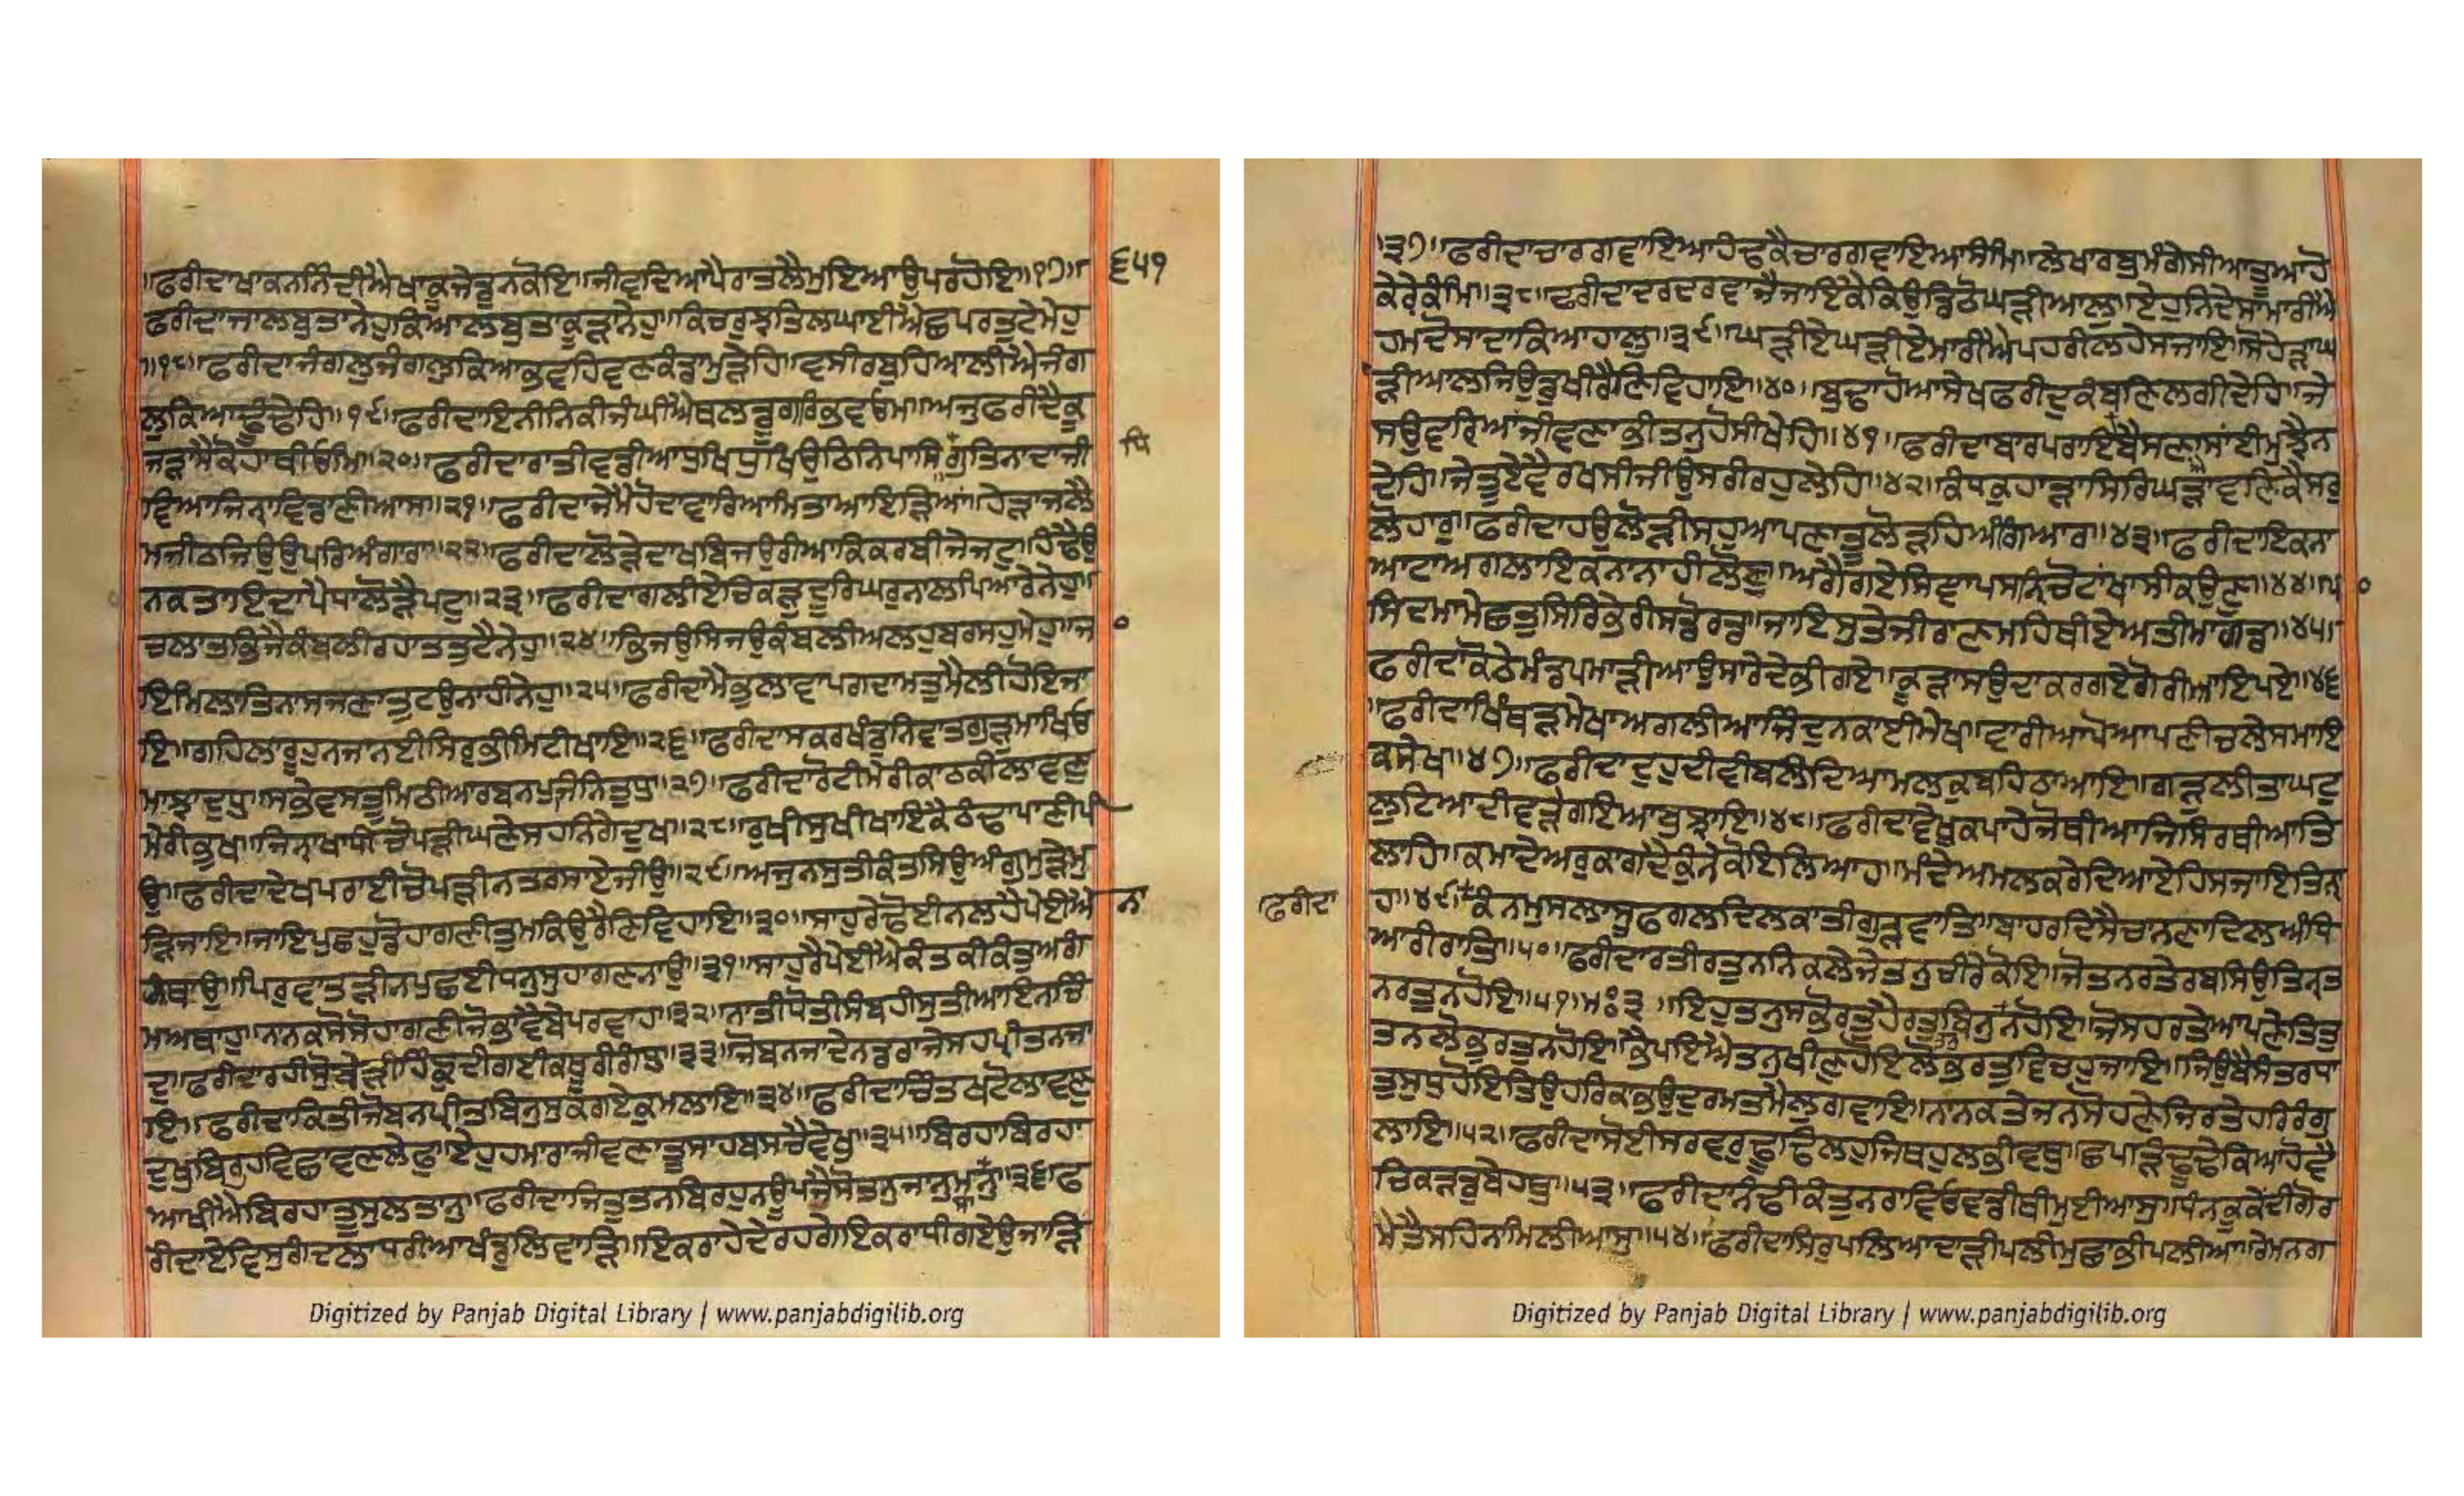 ।ਫਰੀਦਾਖਾਕਨਨਿੰਦੀਐਖਾਕੂਜੇਡੁਨਕੋਇ।ਜੀਵਦਿਆਪੈਰਾਤਲੈਮੁਇਆਉਪਰਹੋਇ॥੧੭॥
੬੫੧
ਫਰੀਦਾਜਾਲਬੁਤਾਨੇਹੁਕਿਆਲਬੁਤਾਕੂੜਾਨੇਹੁ।ਕਿਚਰੁਝਤਿਲਘਾਈਐਛਪਰਤੁਟੇਮੇਹੁ
॥੧੮।ਫਰੀਦਾਜੰਗਲੁਜੰਗਲੁਕਿਆਭਵਹਿਵਣਕੰਡਾਮੁੜੇਹਿ।ਵਸੀਰਬੁਹਿਆਲੀਐਜੰਗ
ਲੁਕਿਆਢੂੰਢੇਹਿ।੧੯।ਫਰੀਦਾਇਨੀਨਿਕੀਜੰਘੀਐਥਲਡੂਗਰਿਭਵਓਮਿ।ਅਜੁਫਰੀਦੈਕੂ
ਜੜਾਮੈਕੋਹਾਥੀਓਮਿ।੨੦।ਫਰੀਦਾਰਾਤੀਵਡੀਆਧੁਖਿਧੁਖਿਉਠਿਨਿਪਾਸਿਗੁਤਿਨਾਦਾਜੀ
ਧਿ
ਵਿਆਜਿਨਾਵਿਡਾਣੀਆਸ॥੨੧॥ਫਰੀਦਾਜੇਮੈਹੋਦਾਵਾਰਿਆਮਿਤਾਆਇੜਿਆਂ।ਹੇੜਾਜਲੈ
ਮਜੀਠਜਿਉਉਪਰਿਅੰਗਾਰਾ॥੨੨॥ਫਰੀਦਾਲੋੜੇਦਾਖਬਿਜਉਰੀਆਕਿਕਰਬੀਜੇਜਟੁ।ਹਿੰਢੈਉ
ਨਕਤਾਇਦਾਪੈਧਾਲੋੜੈਪਟੁ॥੨੩॥ਫਰੀਦਾਗਲੀਏਚਿਕੜੁਦੂਰਿਘਰੁਨਾਲਪਿਆਰੇਨੇਹੁ।
ਚਲਾਤਭਿਜੈਕੰਬਲੀਰਹਾਤਤੁਟੈਨੇਹੁ॥੨੪॥ਭਿਜਉਸਿਜਉਕੰਬਲੀਅਲਹੁਬਰਸਹੁਮੇਹੁ।ਜ
ਇਮਿਲਾਤਿਨਾਸਜਣਾਤੁਟਉਨਾਹੀਨੇਹੁ॥੨੫॥ਫਰੀਦਾਮੈਭੁਲਾਵਾਪਗਦਾਮਤੁਮੈਲੀਹੋਇਜਾ
ਇ।ਗਹਿਲਾਰੂਹੁਨਜਾਨਈਸਿਰੁਭੀਮਿਟੀਖਾਇ॥੨੬॥ਫਰੀਦਾਸਕਰਖੰਡੁਨਿਵਾਤਗੁੜੁਮਾਖਿਓ
ਮਾਝਾਦੁਧੁ।ਸਭੇਵਸਤੂਮਿਠੀਆਰਬਨਪੁਜਨਿਤੁਧੁ।੨੭॥ਫਰੀਦਾਰੋਟੀਮੇਰੀਕਾਠਕੀਲਾਵਣੁ
ਮੇਰੀਭੁਖ।ਜਿਨਾਖਾਧੀਚੋਪੜੀਘਣੇਸਹਨਿਗੇਦੁਖ॥੨੮॥ਰੁਖੀਸੁਖੀਖਾਇਕੈਠੰਢਾਪਾਣੀਪੀ
ਉ।ਫਰੀਦਾਦੇਖਪਰਾਈਚੋਪੜੀਨਤਰਸਾਏਜੀਉ॥੨੯॥ਅਜੁਨਸੁਤੀਕੰਤਸਿਉਅੰਗੁਮੁੜੇਮੁ
ੜਿਜਾਇ।ਜਾਇਪੁਛਹੁਡੋਹਾਗਣੀਤੁਮਕਿਉਰੈਣਿਵਿਹਾਇ॥੩੦॥ਸਾਹੁਰੇਢੋਈਨਲਹੈਪੇਈਐ
ਨਾ
ਥਾਉ।ਪਿਰੁਵਾਤੜੀਨਪੁਛਈਧਨਸੁਹਾਗਣਨਾਉ॥੩੧॥ਸਾਹੁਰੈਪੇਈਐਕੰਤਕੀਕੰਤੁਅਗੰ
ਮਅਥਾਹੁ।ਨਾਨਕਸੋਸੋਹਾਗਣੀਜੋਭਾਵੈਬੇਪਰਵਾਹ॥੩੨॥ਨਾਤੀਧੋਤੀਸੰਬਹੀਸੁਤੀਆਇਨਚਿੰ
ਦੁ।ਫਰੀਦਾਰਹੀਸੁਬੇੜੀਹਿੰਙੁਦੀਗਈਕਥੂਰੀਗੰਧੁ॥੩੩॥ਜੋਬਨਜਾਦੇਨਡਰਾਜੇਸਹਪ੍ਰੀਤਨਜਾ
ਇ।ਫਰੀਦਾਕਿਤੀਜੋਬਨਪ੍ਰੀਤਬਿਨੁਸੁਕਗਏਕੁਮਲਾਇ॥੩੪॥ਫਰੀਦਾਚਿੰਤਖਟੋਲਾਵਾਣੁ
ਦੁਖੁਬਿਰਹਵਿਛਾਵਣਲੇਫੁ।ਏਹੁਹਮਾਰਾਜੀਵਣਾਤੂਸਾਹਬਸਚੇਵੇਖੁ॥੩੫॥ਬਿਰਹਾਬਿਰਹਾ
ਆਖੀਐਬਿਰਹਾਤੂਸੁਲਤਾਨੁ।ਫਰੀਦਾਜਿਤੁਤਨਬਿਰਹੁਨਉਪਜੈਸੋਤਨੁਜਾਨੁਮਸਾਨੁ॥੩੬॥ਫ
ਰੀਦਾਏਵਿਸੁਗੰਦਲਾਧਰੀਆਖੰਡੁਲਿਵਾੜਿ।ਇਕਰਾਹੇਦੇਰਹਗੇਇਕਰਾਧੀਗਏਉਜਾੜਿ
Digitized by Panjab Digital Library | www.panjabdigilib.org
।੩੭॥ਫਰੀਦਾਚਾਰਗਵਾਇਆਹੰਢਕੈਚਾਰਗਵਾਇਆਸੰਮਿ।ਲੇਖਾਰਬੁਮੰਗੇਸੀਆਤੂਆਹੋ
ਕੇਰ੍ਹੇਕੰਮਿ॥੩੮॥ਫਰੀਦਾਦਰਦਰਵਾਜੈਜਾਇਕੈਕਿਉਡਿਠੋਘੜੀਆਲੁ।ਏਹੁਨਿਦੋਸਾਮਾਰੀਐ
ਹਮਦੋਸਾਦਾਕਿਆਹਾਲੁ॥੩੯॥ਘੜੀਏਘੜੀਏਮਾਰੀਐਪਹਰੀਲਹੇਸਜਾਇ।ਸੋਹੇੜਾਘ
ੜੀਆਲਜਿਉਡੁਖੀਰੈਣਿਵਿਹਾਇ॥੪੦॥ਬੁਢਾਹੋਆਸੇਖਫਰੀਦੁਕੰਬਣਿਲਗੀਦੇਹਿ।ਜੇ
ਸਉਵਰਿਆਂਜੀਵਣਾਭੀਤਨੁਹੋਸੀਖੇਹਿ॥੪੧॥ਫਰੀਦਾਬਾਰਪਰਾਇਬੈਸਣਾਸਾਂਈਮੁਝੈਨ
ਦੇਹਿ।ਜੇਤੂਏਵੈਰਖਸੀਜੀਉਸਰੀਰਹੁਲੇਹਿ॥੪੨॥ਕੰਧਕੁਹਾੜਾਸਿਰਿਘੜਾਵਣਿਕੈਸਰੁ
ਲੋਹਾਰੁ।ਫਰੀਦਾਹਉਲੋੜੀਸਹੁਆਪਣਾਤੂਲੋੜਹਿਅੰਗਿਆਰ॥੪੩॥ਫਰੀਦਾਇਕਨਾ
ਆਟਾਅਗਲਾਇਕਨਾਨਾਹੀਲੋਣੁ।ਅਗੈਗਏਸਿਞਾਪਸਨਿਚੋਟਾਂਖਾਸੀਕਉਣੁ॥੪੪॥ਪਾ
ਸਿਦਮਾਮੇਛਤੁਸਿਰਿਭੇਰੀਸਡੋਰਡ।ਜਾਇਸੁਤੇਜੀਰਾਣਮਹਿਥੀਏਅਤੀਮਾਗਡ॥੪੫॥
ਫਰੀਦਾਕੋਠੇਮੰਡਪਮਾੜੀਆਉਸਾਰੇਦੇਭੀਗਏ।ਕੂੜਾਸਉਦਾਕਰਗਏਗੋਰੀਆਇਪਏ॥੪੬
।ਫਰੀਦਾਖਿੰਥੜਮੇਖਾਅਗਲੀਆਜਿੰਦੁਨਕਾਈਮੇਖ।ਵਾਰੀਆਪੋਆਪਣੀਚਲੇਸਮਾਇ
ਕਸੇਖ॥੪੭॥ਫਰੀਦਾਦੁਹੁਦੀਵੀਬਲੰਦਿਆਮਲਕੁਬਹਿਠਾਆਇ।ਗੜੁਲੀਤਾਘਟੁ
ਲੁਟਿਆਦੀਵੜੇਗਇਆਬੁਝਾਇ॥੪੮॥ਫਰੀਦਾਵੇਖੁਕਪਾਹੇਜੋਥੀਆਜਿਸਿਰਥੀਆਤਿ
ਲਾਹਿ।ਕਮਾਦੇਅਰੁਕਾਗਦੈਕੁੰਨੇਕੋਇਲਿਆਹ।ਮੰਦੇਅਮਲਕਰੇਦਿਆਏਹਿਸਜਾਇਤਿਨਾ
ਫਰੀਦਾ
ਹ॥੪੯॥ਕੰਨਮੁਸਲਾਸੂਫਗਲਦਿਲਕਾਤੀਗੁੜੁਵਾਤਿ।ਬਾਹਰਦਿਸੈਚਾਨਣਾਦਿਲਅੰਧਿ
ਆਰੀਰਾਤਿ॥੫੦॥ਫਰੀਦਾਰਤੀਰਤੁਨਨਿਕਲੈਜੇਤਨੁਚੀਰੇਕੋਇ।ਜੋਤਨਰਤੇਰਬਸਿਉਤਿਨਤ
ਨਰਤੁਨਹੋਇ॥੫੧॥ਮਃ੩॥ਇਹੁਤਨੁਸਭੋਰਤੁਹੈਰਤੁਬਿਨੁਤੰਨਹੋਇ।ਜੋਸਹਰਤੇਆਪਣੇਤਿਤੁ
ਤਨਲੋਭੁਰਤੁਨਹੋਇ।ਭੈਪਇਐਤਨੁਖੀਣੁਹੋਇਲੋਭੁਰਤੁਵਿਚਹੁਜਾਇ।ਜਿਉਬੈਸੰਤਰਧਾ
ਤੁਸੁਧੁਹੋਇਤਿਉਹਰਿਕਾਭਉਦੁਰਮਤਮੈਲੁਗਵਾਇ।ਨਾਨਕਤੇਜਨਸੋਹਣੇਜਿਰਤੇਹਰਿਰੰਗੁ
ਲਾਇ॥੫੨॥ਫਰੀਦਾਸੋਈਸਰਵਰੁਢੂਢਿਲਹੁਜਿਥਹੁਲਭੀਵਥੁ।ਛਪੜਿਢੂਢੇਕਿਆਹੋਵੈ
ਚਿਕੜਡੁਬੇਹਥੁ॥੫੩॥ਫਰੀਦਾਨੰਢੀਕੰਤੁਨਰਾਵਿਓਵਡੀਥੀਮੁਈਆਸੁ।ਧੰਨਕੂਕੇਂਦੀਗੋਰ
ਮੇਤੈਸਹਿਨਾਮਿਲੀਆਸੁ॥੫੪॥ਫਰੀਦਾਸਿਰੁਪਲਿਆਦਾੜੀਪਲੀਮੁਛਾਭੀਪਲੀਆ।ਰੇਮਨਗ
Digitized by Panjab Digital Library | www.panjabdigilib.org